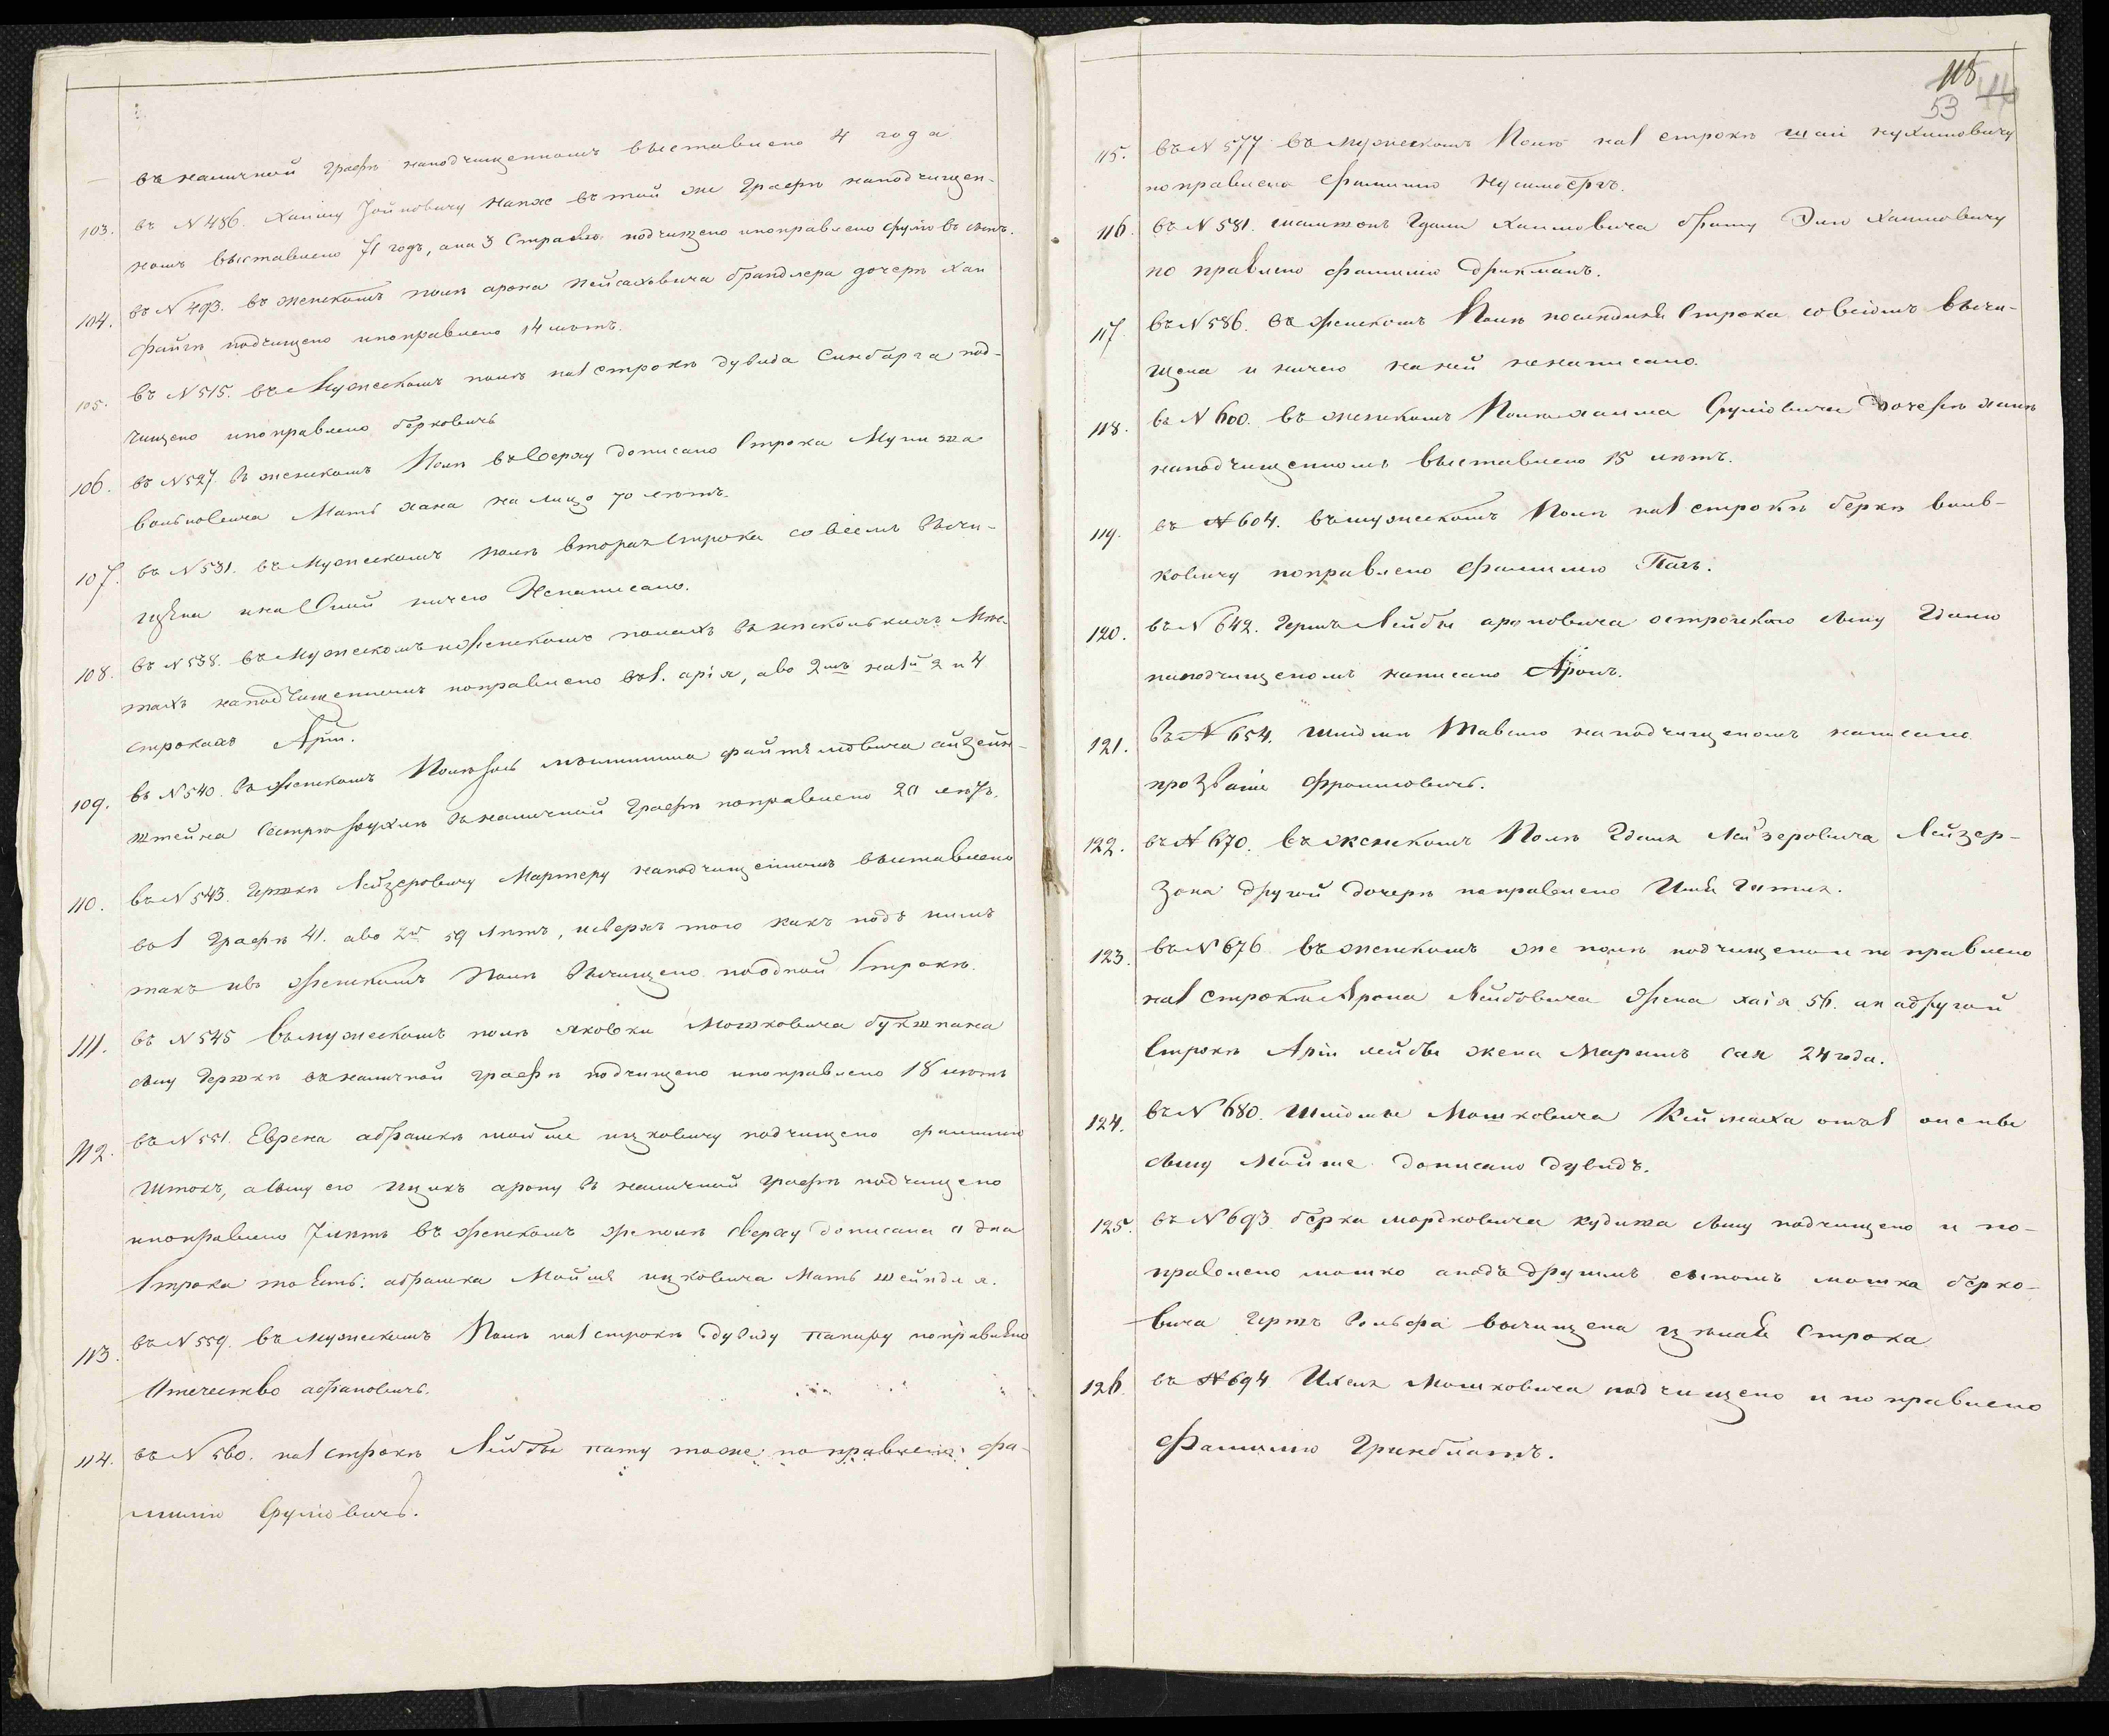 въ наличной графѣ наподчищенномъ выставлено 4 года
103. въ N 486. Хаиму Зойновичу также въ той же графѣ наподчищен-
номъ выставлено 71 годъ, а на 3 строкѣ подчищено и поправлено Срулю въ лѣтъ.
104. въ N 493. въ женскомъ полѣ арона пейсаховича брандлера дочерѣ хаи
файгѣ подчищено и поправлено 14 лѣтъ.
105. въ N 515. въ Мужескомъ полѣ на 1 строкѣ дувида Синбарга под-
чищено и поправлено берковичь
106. въ N 527. въ женскомъ Полѣ въ Верху дописано Строка
вольковича Мать хана на лицо 70 лѣтъ.
107. въ N 531. въ Мужескомъ полѣ вторая строка совсемъ вычи-
щена и на Оной ничего Ненаписано.
108. въ N 538. въ Мужескомъ и женскомъ полахъ въ нѣсколькихъ Мѣс-
тахъ наподчищенномъ поправлено въ 1. арія, а во 2мъ на 1й 2 и 4
строкахъ Арiи.
109. въ N 540. въ женскомъ Полѣ файтеловича айзен-
штейна Сестрѣ Рухлѣ въ наличной Графѣ поправлено 20 лѣтъ.
110. въ N 543. Гершкѣ Лейзеровичу Мартеру наподчищенномъ выставлено
во 1 Графѣ 41. а во 2й 59 Лѣтъ, и сверхъ того какъ подъ нимъ
такъ и въ женскомъ Полѣ Вычищено по одной Строкѣ.
111. въ N 545 въ мужескомъ полѣ Яковки Мошковича букшпана
сыну Гершкѣ въ наличной графѣ подчищено и поправлено 18 лѣтъ
112. въ N 551. Еврена абрашкѣ мойше ицковичу подчищено фамилию
Штокъ, а сыну его Ицикъ арону въ наличной графѣ подчищено
и поправлено 7 лѣтъ въ женскомъ же полѣ сверху дописана одна
Строка то есть: абрашка Мойше ицковича Мать шейндля.
113. въ N 559. въ мужескомъ Полѣ на 1 строкѣ дувиду папиру поправлено
Отечество абрановичь.
114. въ N 560. на 1 строкѣ Лейбѣ пату тоже поправлено фа-
милию Срулiовичь.
115
53
115. въ N 577 въ мужескомъ Полѣ на 1 строкѣ шаи нухимовичу
поправлена Фамилию Нусимбергъ.
116. въ N 581. Гдали Хаимовича брату Эли Хаимовичу
поправлено фамилию Брикманъ.
117. въ N 586. въ женскомъ Полѣ последняя Строка совсѣмъ вычи-
щена и ничего на ней ненаписано.
118. въ N 600. въ женскомъ Полѣ хаима Срулiовича дочерѣ ханѣ
наподчищенномъ выставлено 15 лѣтъ.
119. въ N 604. въ мужескомъ Полѣ на 1 строкѣ беркѣ воль-
ковичу поправлено Фамилию Пагъ.
120. въ N 642. Гершъ Лейбы ароновича острогского сыну Гдалю
наподчищеномъ написано Аронъ.
121. въ N 654. Шлiомѣ Тавелю наподчищеномъ написано
прозванiе Фроимовичь.
122. въ N 670. въ женскомъ Полѣ Гдаля Лейзеровича Лейзер-
зона другой дочерѣ поправлено Имя Гитля.
123. въ N 676 въ женскомъ же полѣ подчищено и поправлено
на 1 строкѣ Арона Лейбовича Жена хаiя 56. и на другой
Строкѣ Арiи лейбы жена Марьямъ сая 24 года.
124. въ N 680. Шлiомы Мошковича отъ 1
сыну Мойше дописано дувидъ.
125. въ N 693 берка мордковича кудиша сыну подчищено и по-
правлено мошко а подъ другимъ сыномъ мошка берко-
вича Гершъ Вольфа вычищена цѣлая Строка
126. въ N 694 Ихеля Мошковича подчищено и поправлено
Фамилию Гринблатъ.